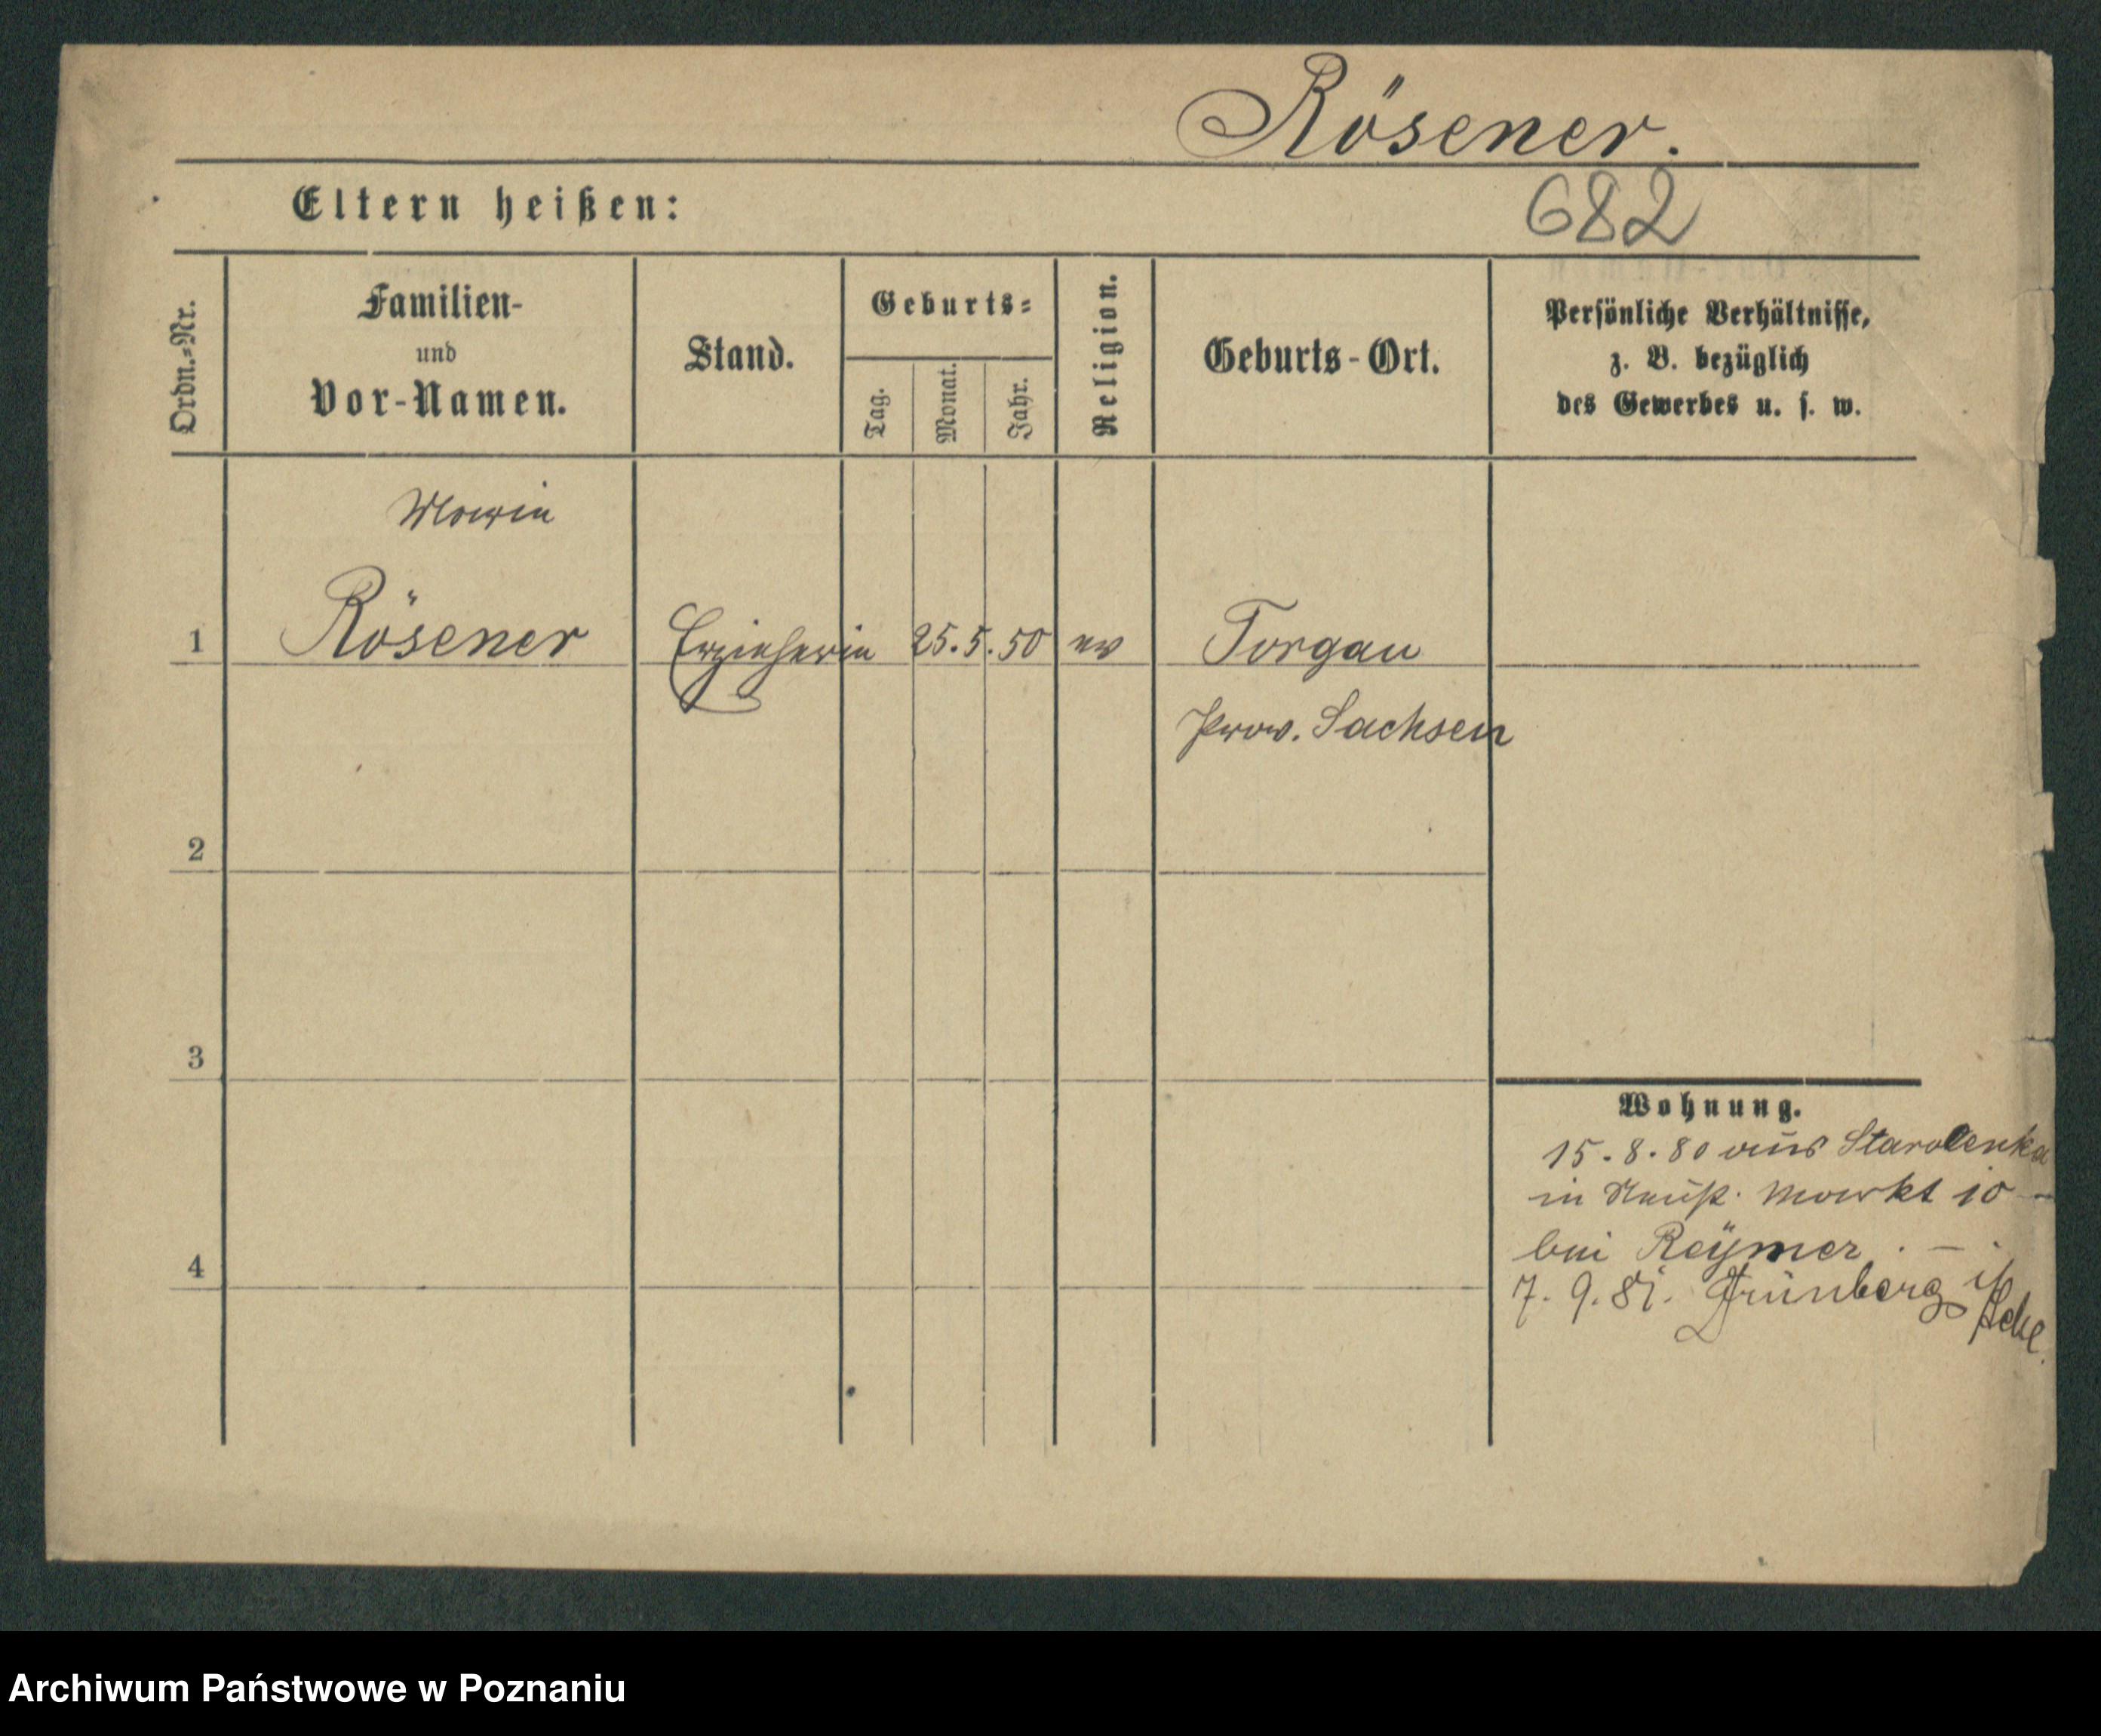 Rösener.
Eltern heißen:
682
Ordn.-Nr.
Familien-
und
Vor-Namen.
Stand.
Geburts-
Tag.
Monat.
Jahr.
Religion.
Geburts-Ort.
Persönliche Verhältnisse,
z. B. bezüglich
des Gewerbes u. s. w.
Marie
1 Rösener Erzieherin 25. 5. 50 ev Torgau
Prov. Sachsen
2
3
Wohnung.
15. 8. 80 aus Starolenka
in Neust. Markt 10 -
bei Reÿmer. -
7. 9. 81. Grünberg i/
Schl.
4
Archiwum Państwowe w Poznaniu